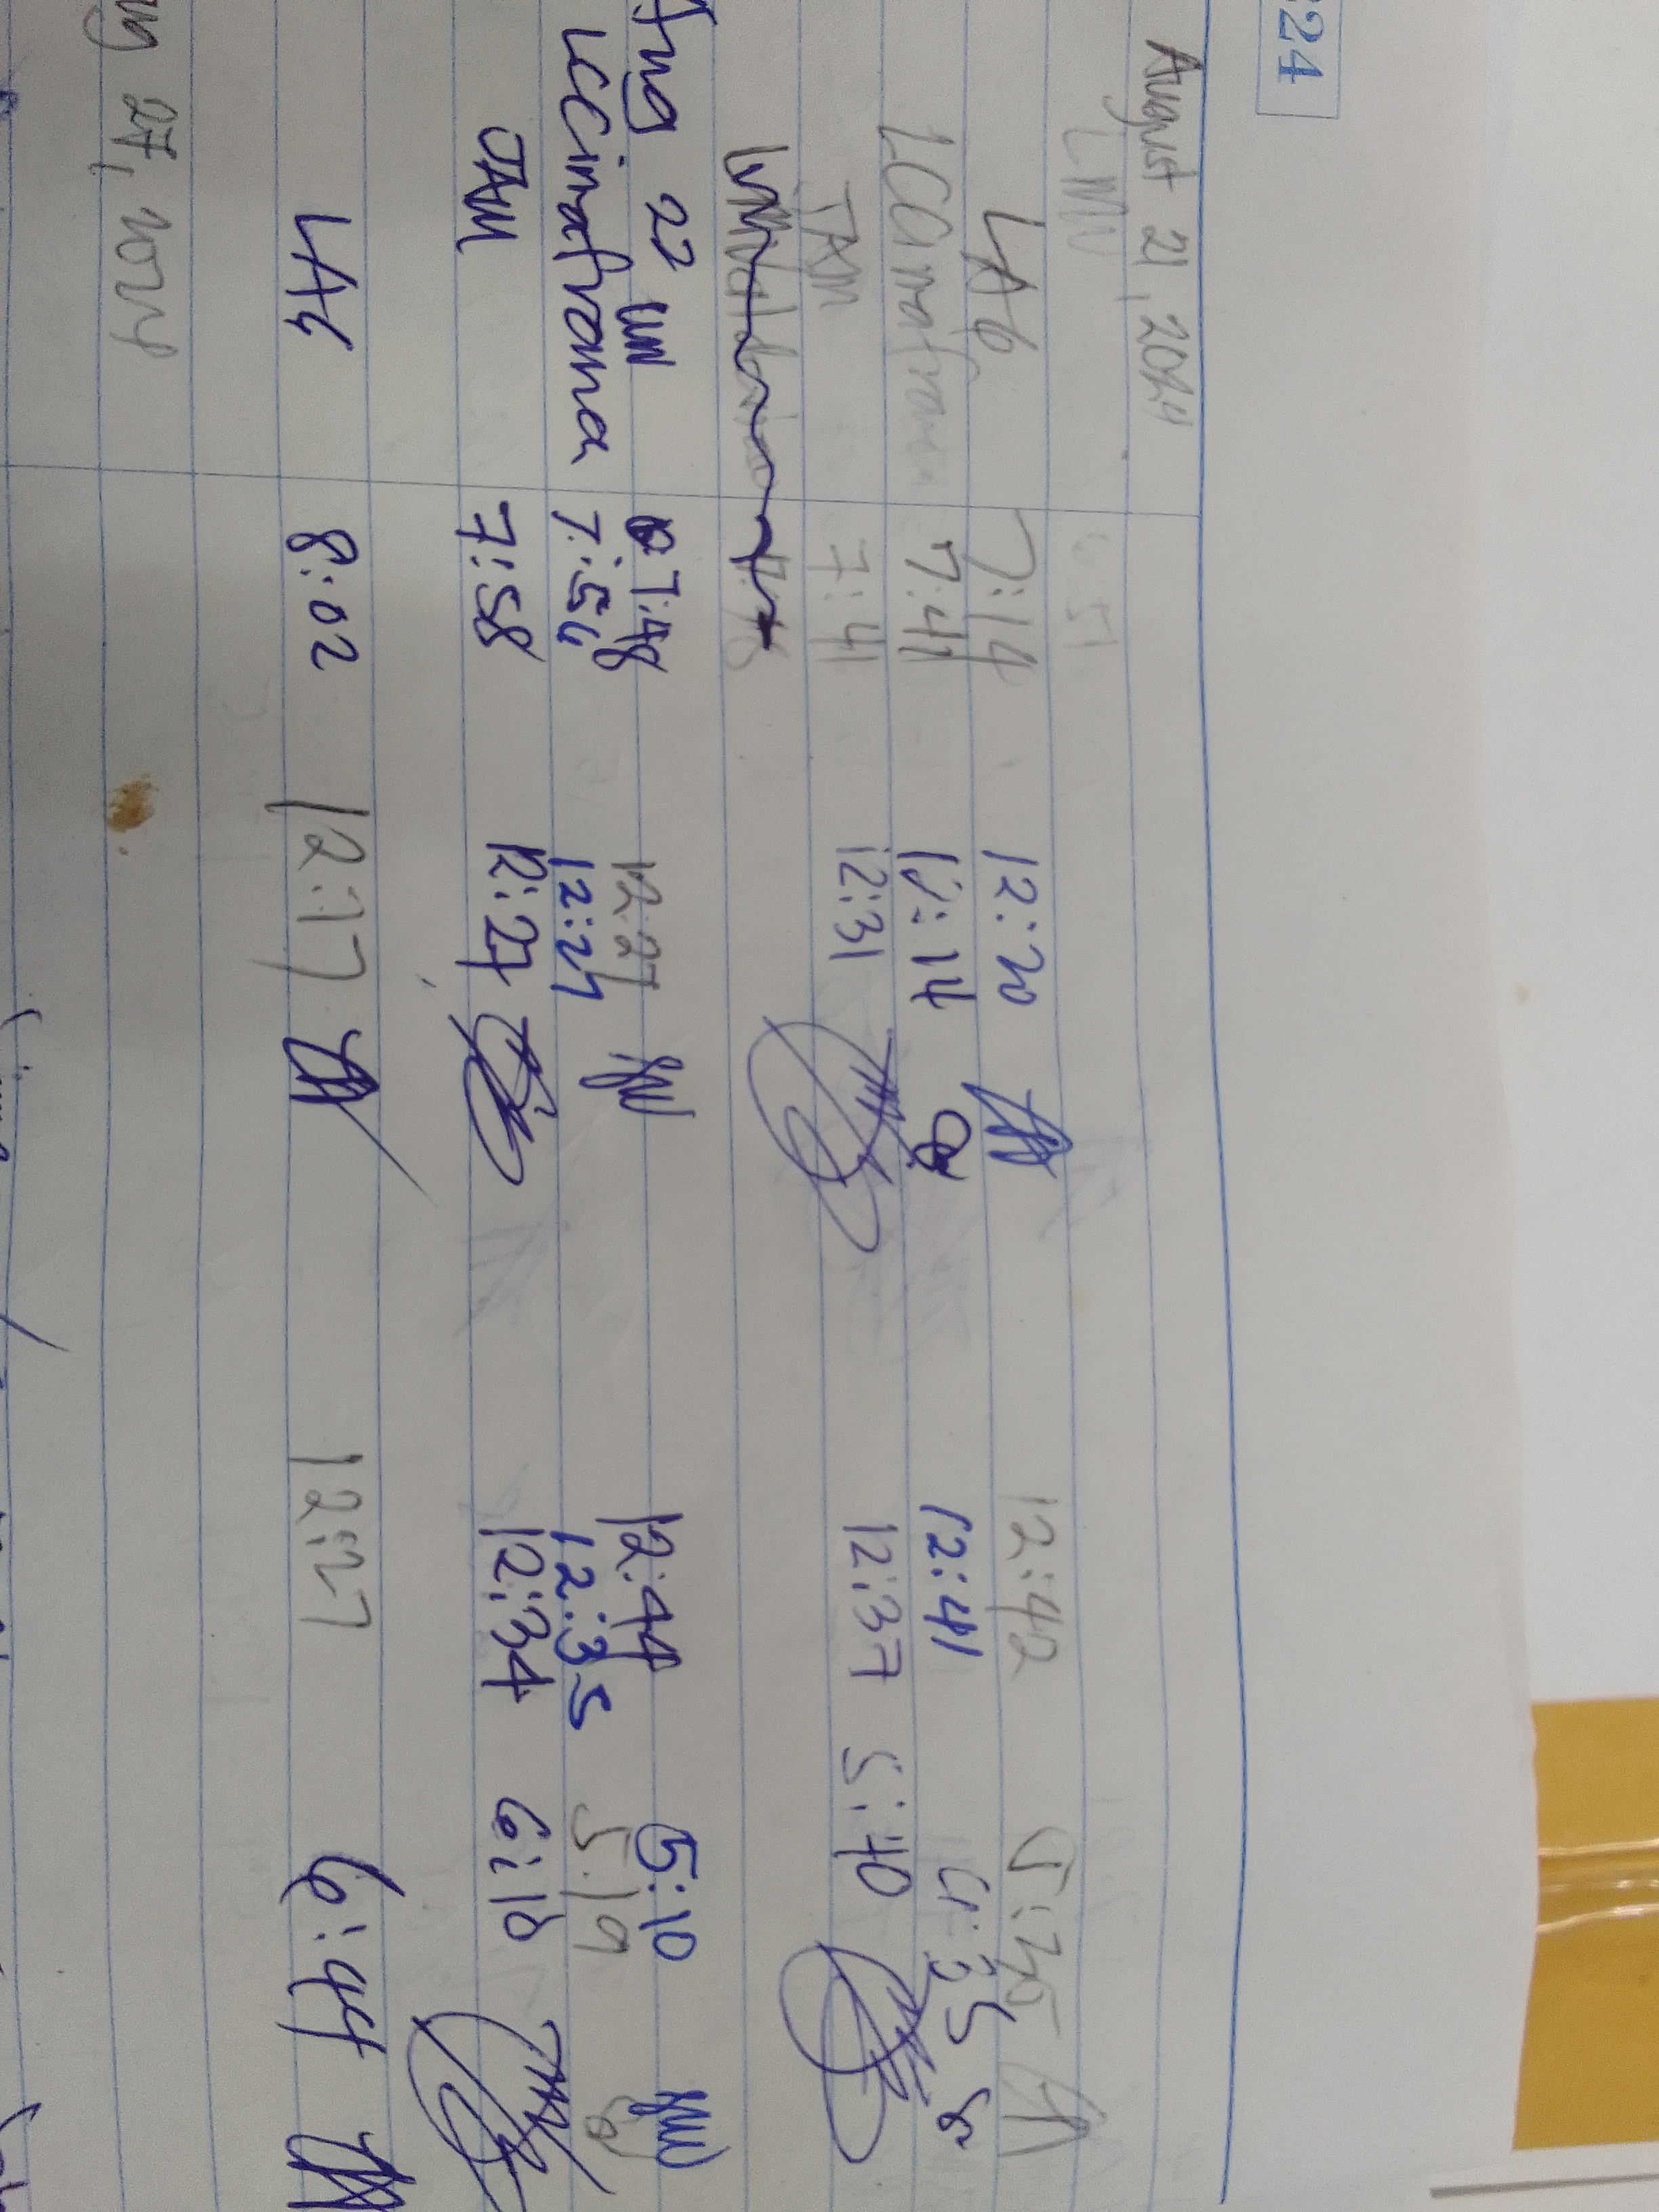 :24
August 21, 2024
LMV 6:51
LAG 7:14 12:20 12:42 5:35
LCCimafranca 7:41 12:14 12:41 5:35
JAM 7:41 12:31 12:37 5:40
Aug 22
LMV 7:48 12:27 12:44 5:10
LCCimafranca 7:56 12:27 12:35 5:19
JAM 7:58 12:27 12:34 6:10
LAG 8:02 12:17 12:27 6:44
Aug 27, 2024